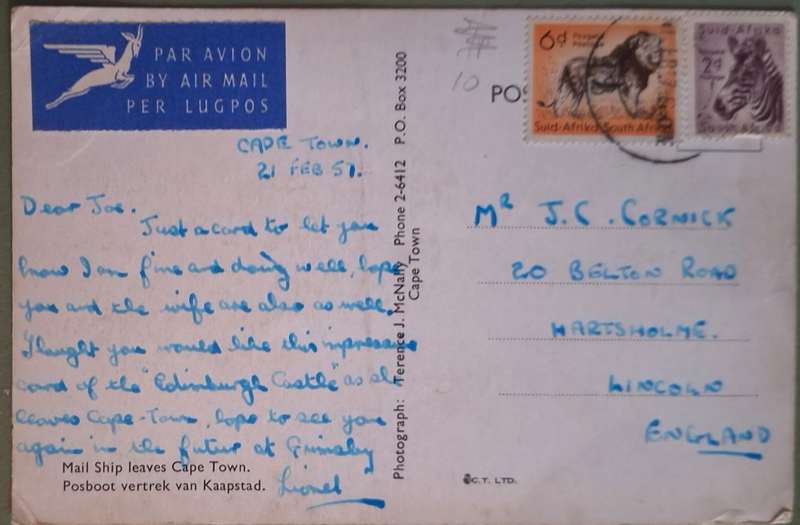 PAR AVION
BY AIR MAIL
PER LUGPOS
CAPE TOWN.
21 FEB 57.
Dear Joe.
Just a card to let you
know I am fine and doing well, hope
you and the wife are also as well.
I thought you would like this impressive
card of the "Edinburgh Castle" as she
leaves Cape-Town, hope to see you
again in the future at Grimsby
Lionel
Mail Ship leaves Cape Town.
Posboot vertrek van Kaapstad.
Photograph: Terence J. McNally Phone 2-6412 P.O. Box 3200
Cape Town
10
POS
6d Posgeld Postage
Suid-Afrika South Africa
Suid-Afrika
2d
South Africa
MR J. C. CORNICK
20 BELTON ROAD
HARTSHOLME.
LINCOLN
ENGLAND
C.T. LTD.